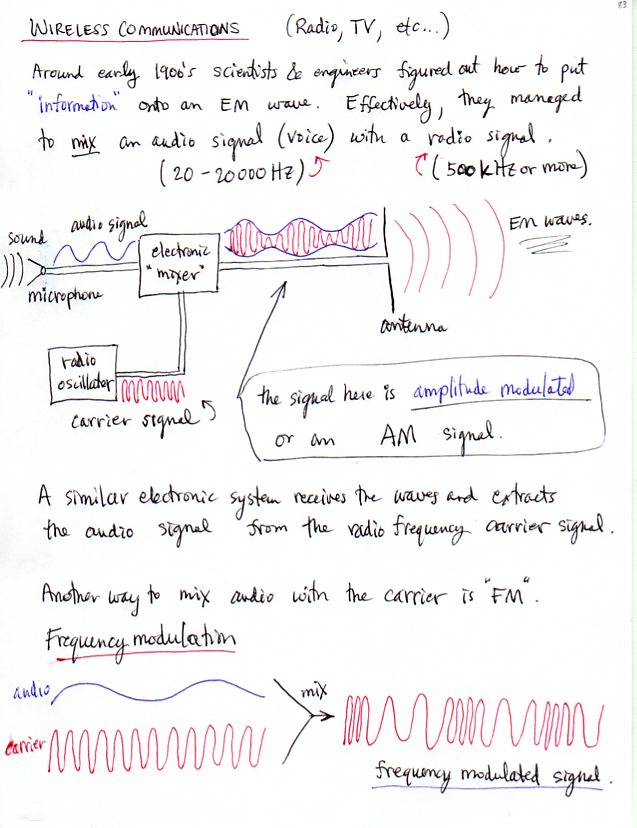 83
WIRELESS COMMUNICATIONS (Radio, TV, etc...)
Around early 1900's scientists & engineers figured out how to put
"information" onto an EM wave. Effectively, they managed
to mix an audio signal (voice) with a radio signal.
(20 - 20000 Hz) (500 kHz or more)
audio signal
sound
microphone
electronic
"mixer"
EM waves.
antenna
radio
oscillator
carrier signal
the signal here is amplitude modulated
or an AM signal.
A similar electronic system receives the waves and extracts
the audio signal from the radio frequency carrier signal.
Another way to mix audio with the carrier is "FM".
Frequency modulation
audio
carrier
mix
frequency modulated signal.